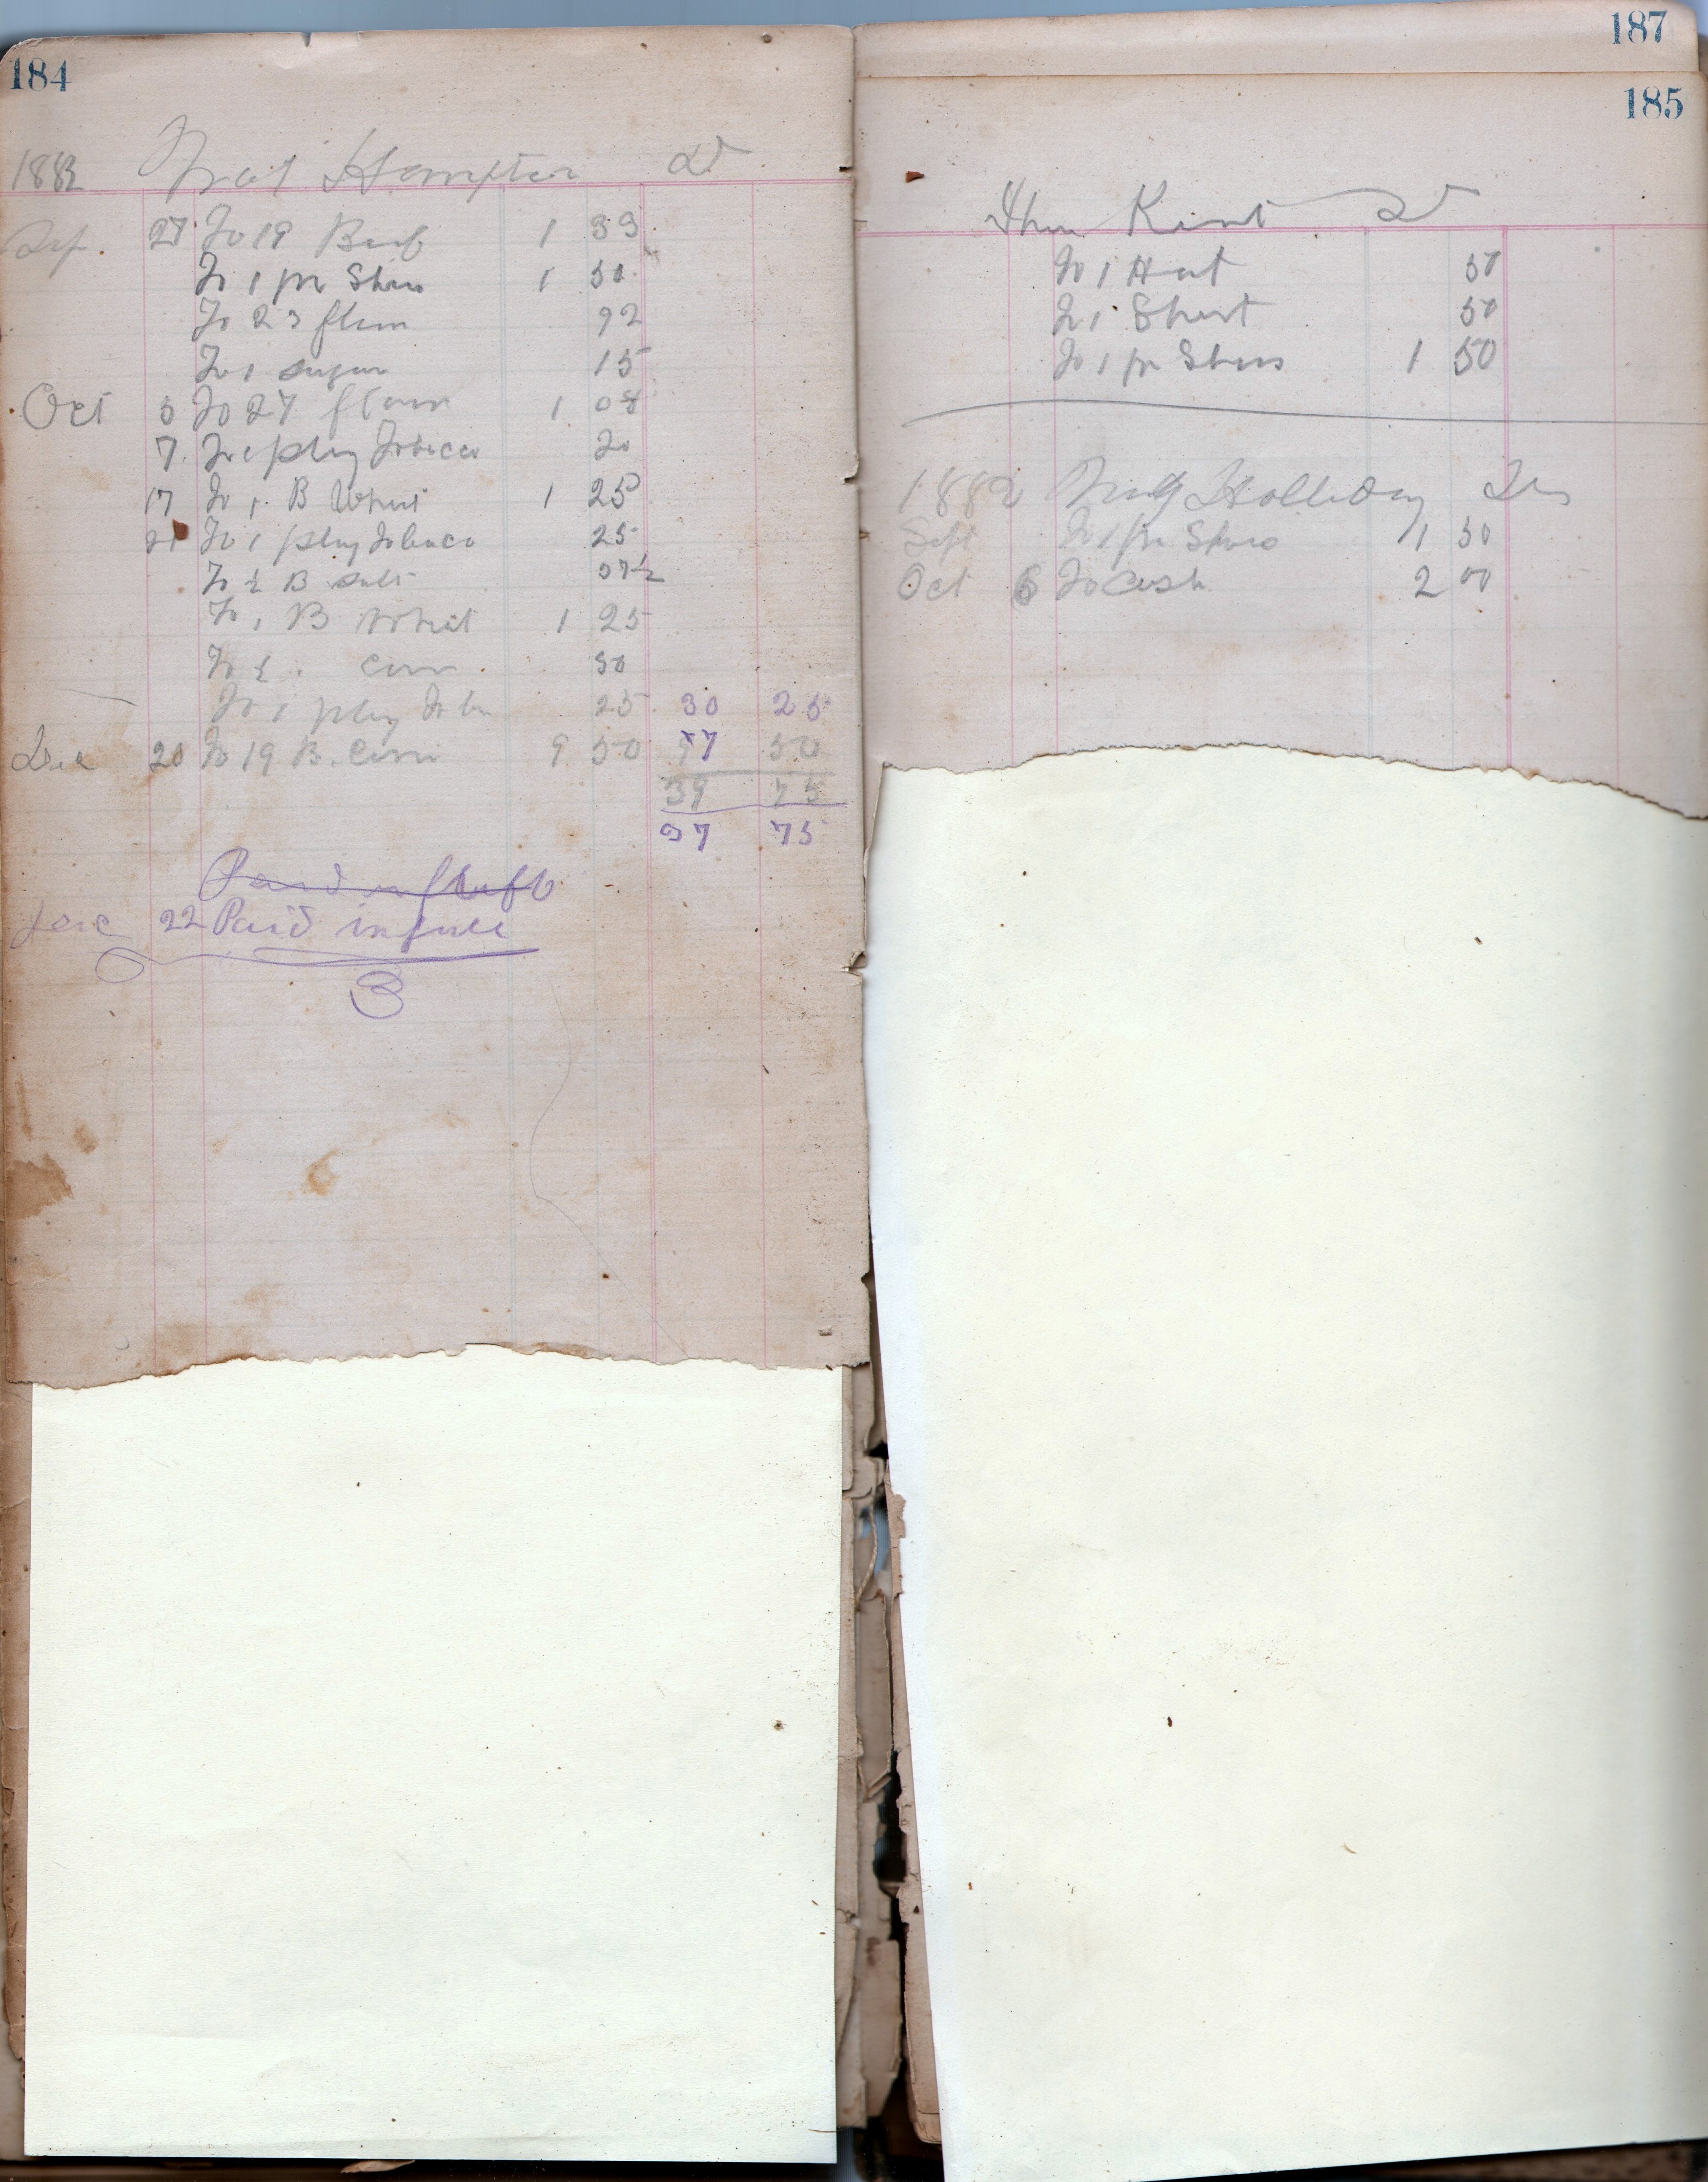 184
1882 Nat Hampton Dr
Sep. 27 To 19 Beef 1 33
To 1 pr Shoes 1 50
To 23 flour 92
To 1 sugar 15
Oct 5 To 27 flour 1 08
7 To 1 plug Tobacco 20
17 To 1 B Wheat 1 25
21 To 1 plug Tobacco 25
To ½ B Salt 37½
To 1 B Wheat 1 25
To ½ Corn 50
To 1 plug Tob 25 30 25
Dec 20 To 19 B. Corn 9 50 50
39 75
37 75
Dec 22 Paid in full
187
185
Kent Dr
To 1 Hat 50
To 1 Shirt 50
To 1 pr Shoes 1 50
1882 Holliday Dr
Sept To 1 pr Shoes 1 50
Oct 6 To Cash 2 00